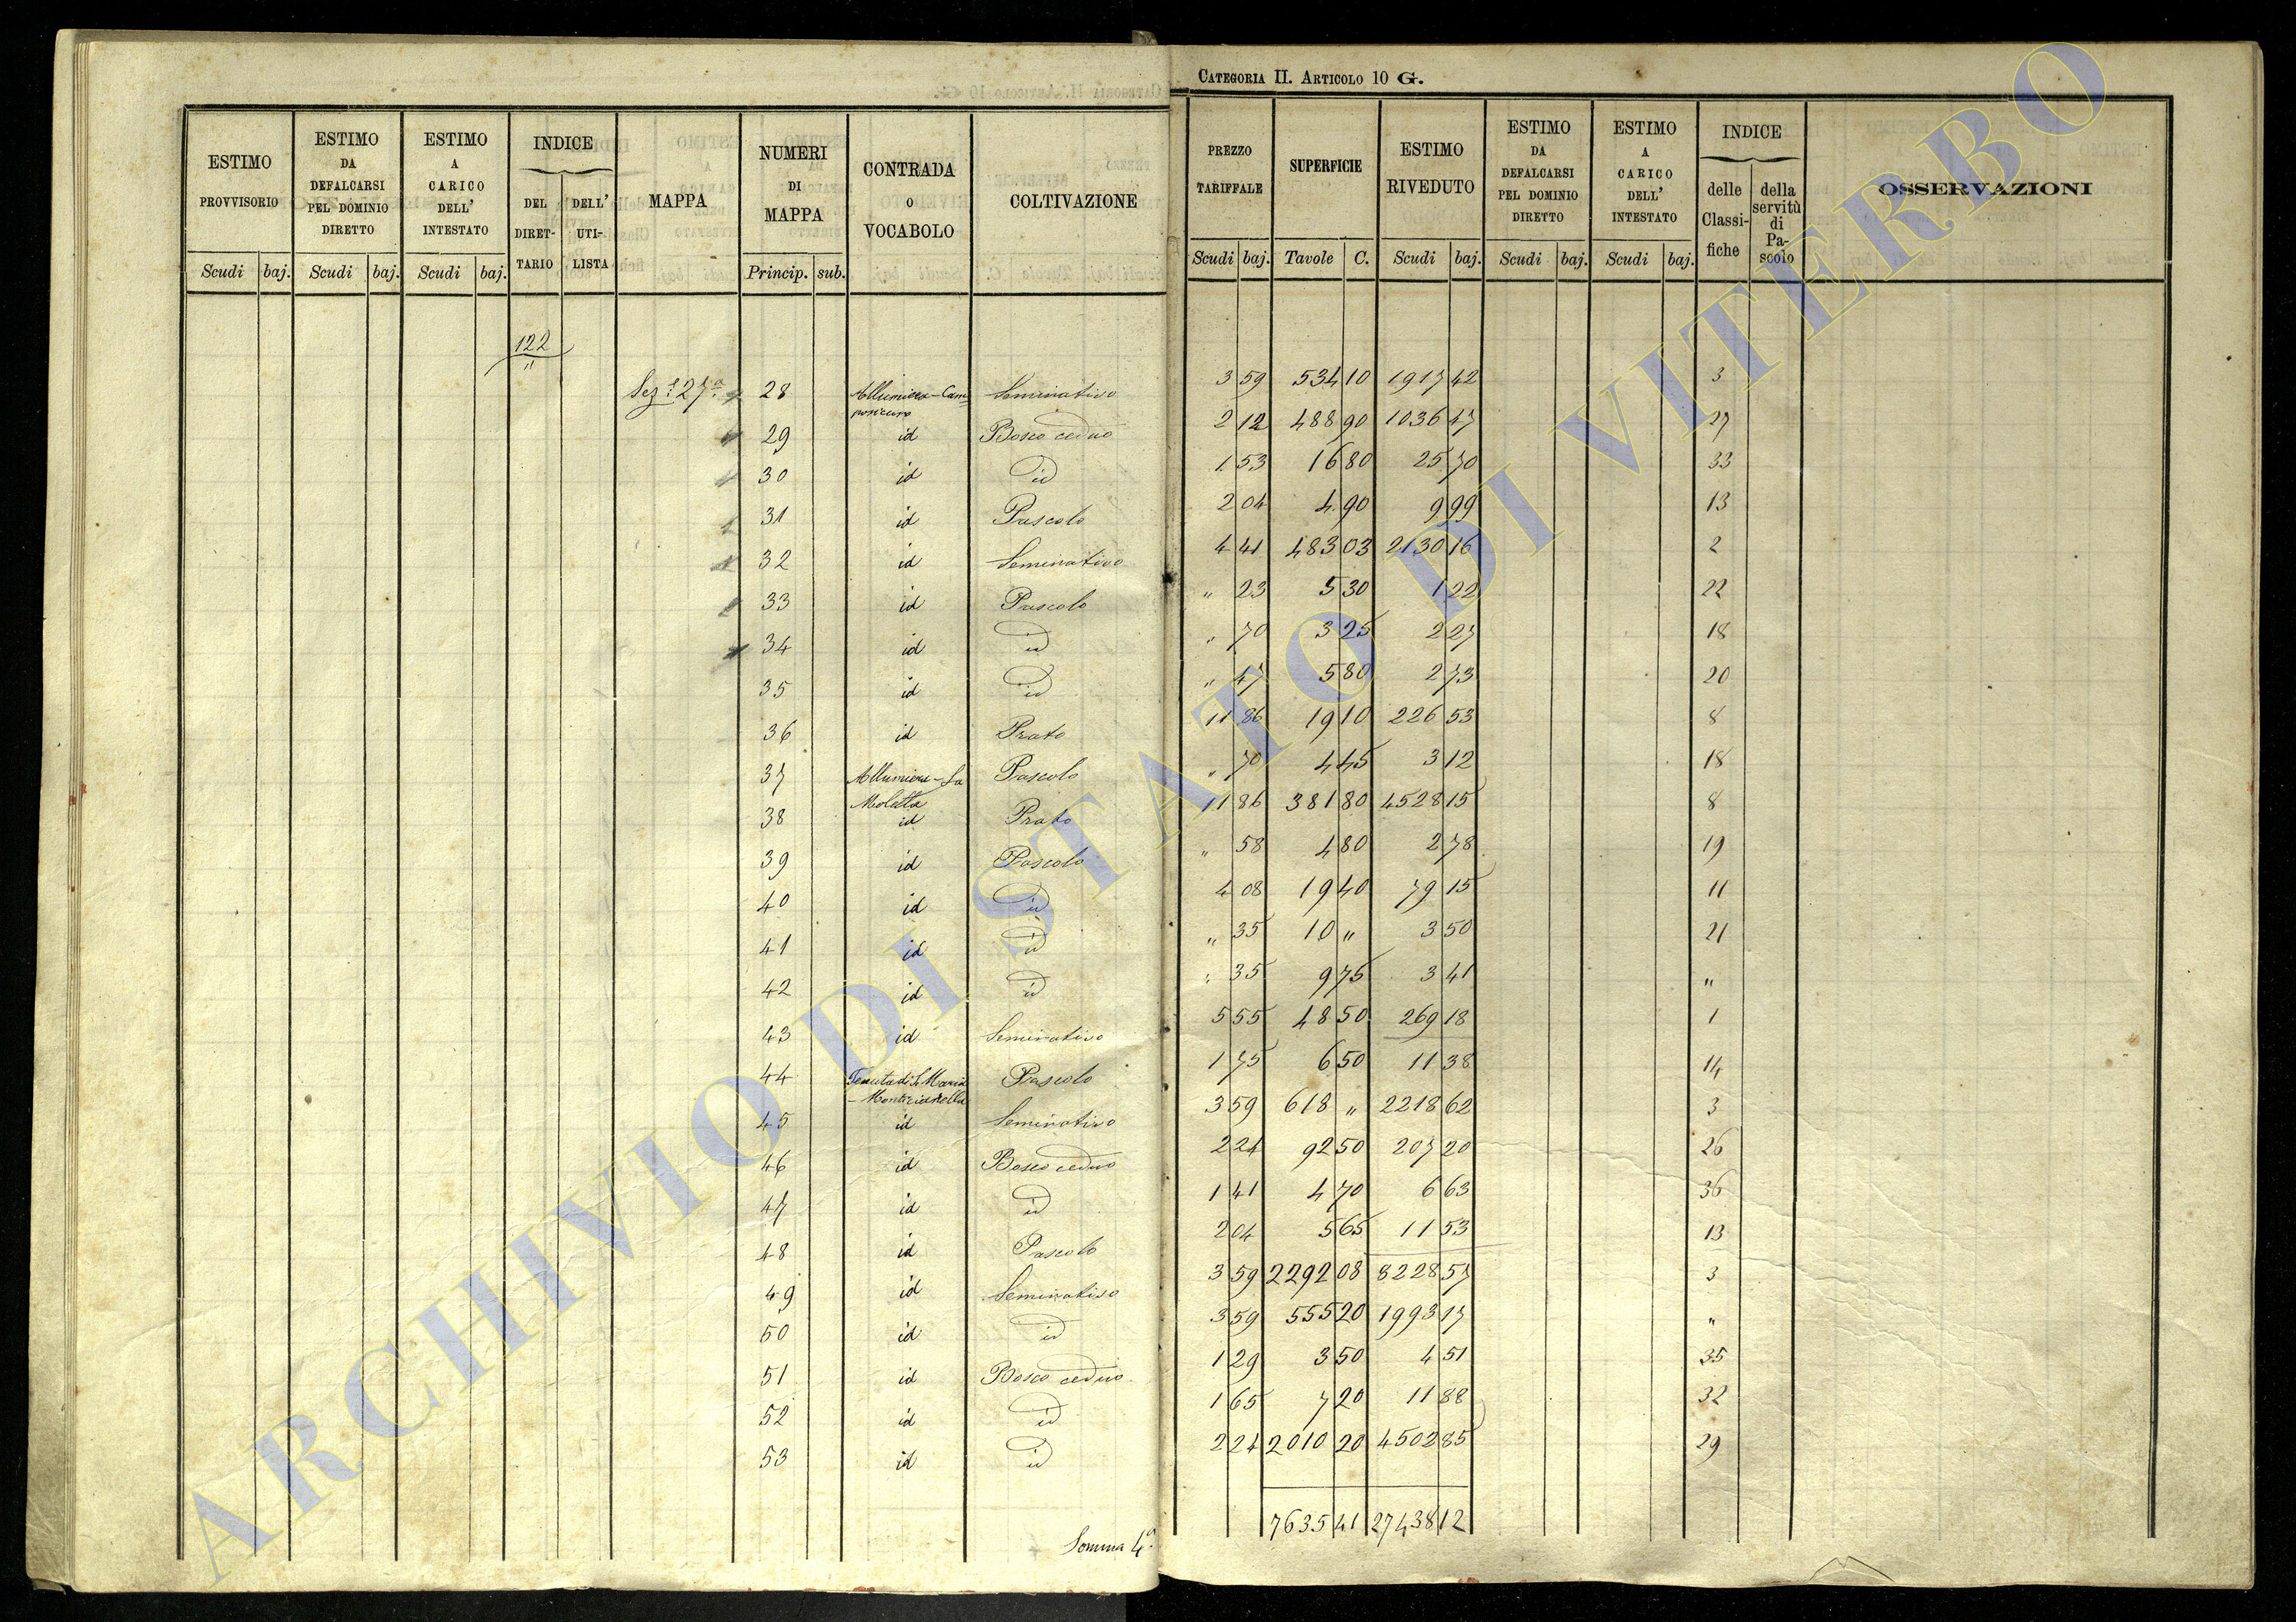 CATEGORIA II. ARTICOLO 10 G.
ESTIMO PROVVISORIO | ESTIMO DA DEFALCARSI PEL DOMINIO DIRETTO | ESTIMO A CARICO DELL' INTESTATO | INDICE | MAPPA | NUMERI DI MAPPA | CONTRADA O VOCABOLO | COLTIVAZIONE | PREZZO TARIFFALE | SUPERFICIE | ESTIMO RIVEDUTO | ESTIMO DA DEFALCARSI PEL DOMINIO DIRETTO | ESTIMO A CARICO DELL' INTESTATO | INDICE | OSSERVAZIONI
DEL DIRET-TARIO | DELL' UTI-LISTA | delle Classi-fiche | della servitù di Pa-scolo
Scudi | baj. | Scudi | baj. | Scudi | baj. | Princip. | sub. | Scudi | baj. | Tavole | C. | Scudi | baj. | Scudi | baj. | Scudi | baj.
122
"
Sez.e 27a | 28 | Allumiera - Cam= | Seminativo | 3 59 | 534 10 | 1917 42 | 3
29 | id | Bosco ceduo | 2 12 | 488 90 | 1036 47 | 27
30 | id | id | 1 53 | 16 80 | 25 70 | 33
31 | id | Pascolo | 2 04 | 4 90 | 9 99 | 13
32 | id | Seminativo | 4 41 | 483 03 | 2130 16 | 2
33 | id | Pascolo | " 23 | 5 30 | 1 22 | 22
34 | id | id | " 70 | 3 25 | 2 27 | 18
35 | id | id | " 47 | 5 80 | 2 73 | 20
36 | id | Prato | 11 86 | 19 10 | 226 53 | 8
37 | Allumiera - La | Pascolo | " 70 | 4 45 | 3 12 | 18
Moletta
38 | id | Prato | 11 86 | 381 80 | 4528 15 | 8
39 | id | Pascolo | " 58 | 4 80 | 2 78 | 19
40 | id | id | 4 08 | 19 40 | 79 15 | 11
41 | id | id | " 35 | 10 " | 3 50 | 21
42 | id | id | " 35 | 9 75 | 3 41 | "
43 | id | Seminativo | 5 55 | 48 50 | 269 18 | 1
44 | Tenuta di S. Maria | Pascolo | 1 75 | 6 50 | 11 38 | 14
45 | id | Seminativo | 3 59 | 618 " | 2218 62 | 3
46 | id | Bosco ceduo | 2 24 | 92 50 | 207 20 | 26
47 | id | id | 1 41 | 4 70 | 6 63 | 36
48 | id | Pascolo | 2 04 | 5 65 | 11 53 | 13
49 | id | Seminativo | 3 59 | 2292 08 | 8228 57 | 3
50 | id | id | 3 59 | 555 20 | 1993 17 | "
51 | id | Bosco ceduo | 1 29 | 3 50 | 4 51 | 35
52 | id | id | 1 65 | 7 20 | 11 88 | 32
53 | id | id | 2 24 | 2010 20 | 4502 85 | 29
Somma 4a | 7635 41 | 27438 12
ARCHIVIO DI STATO DI VITERBO